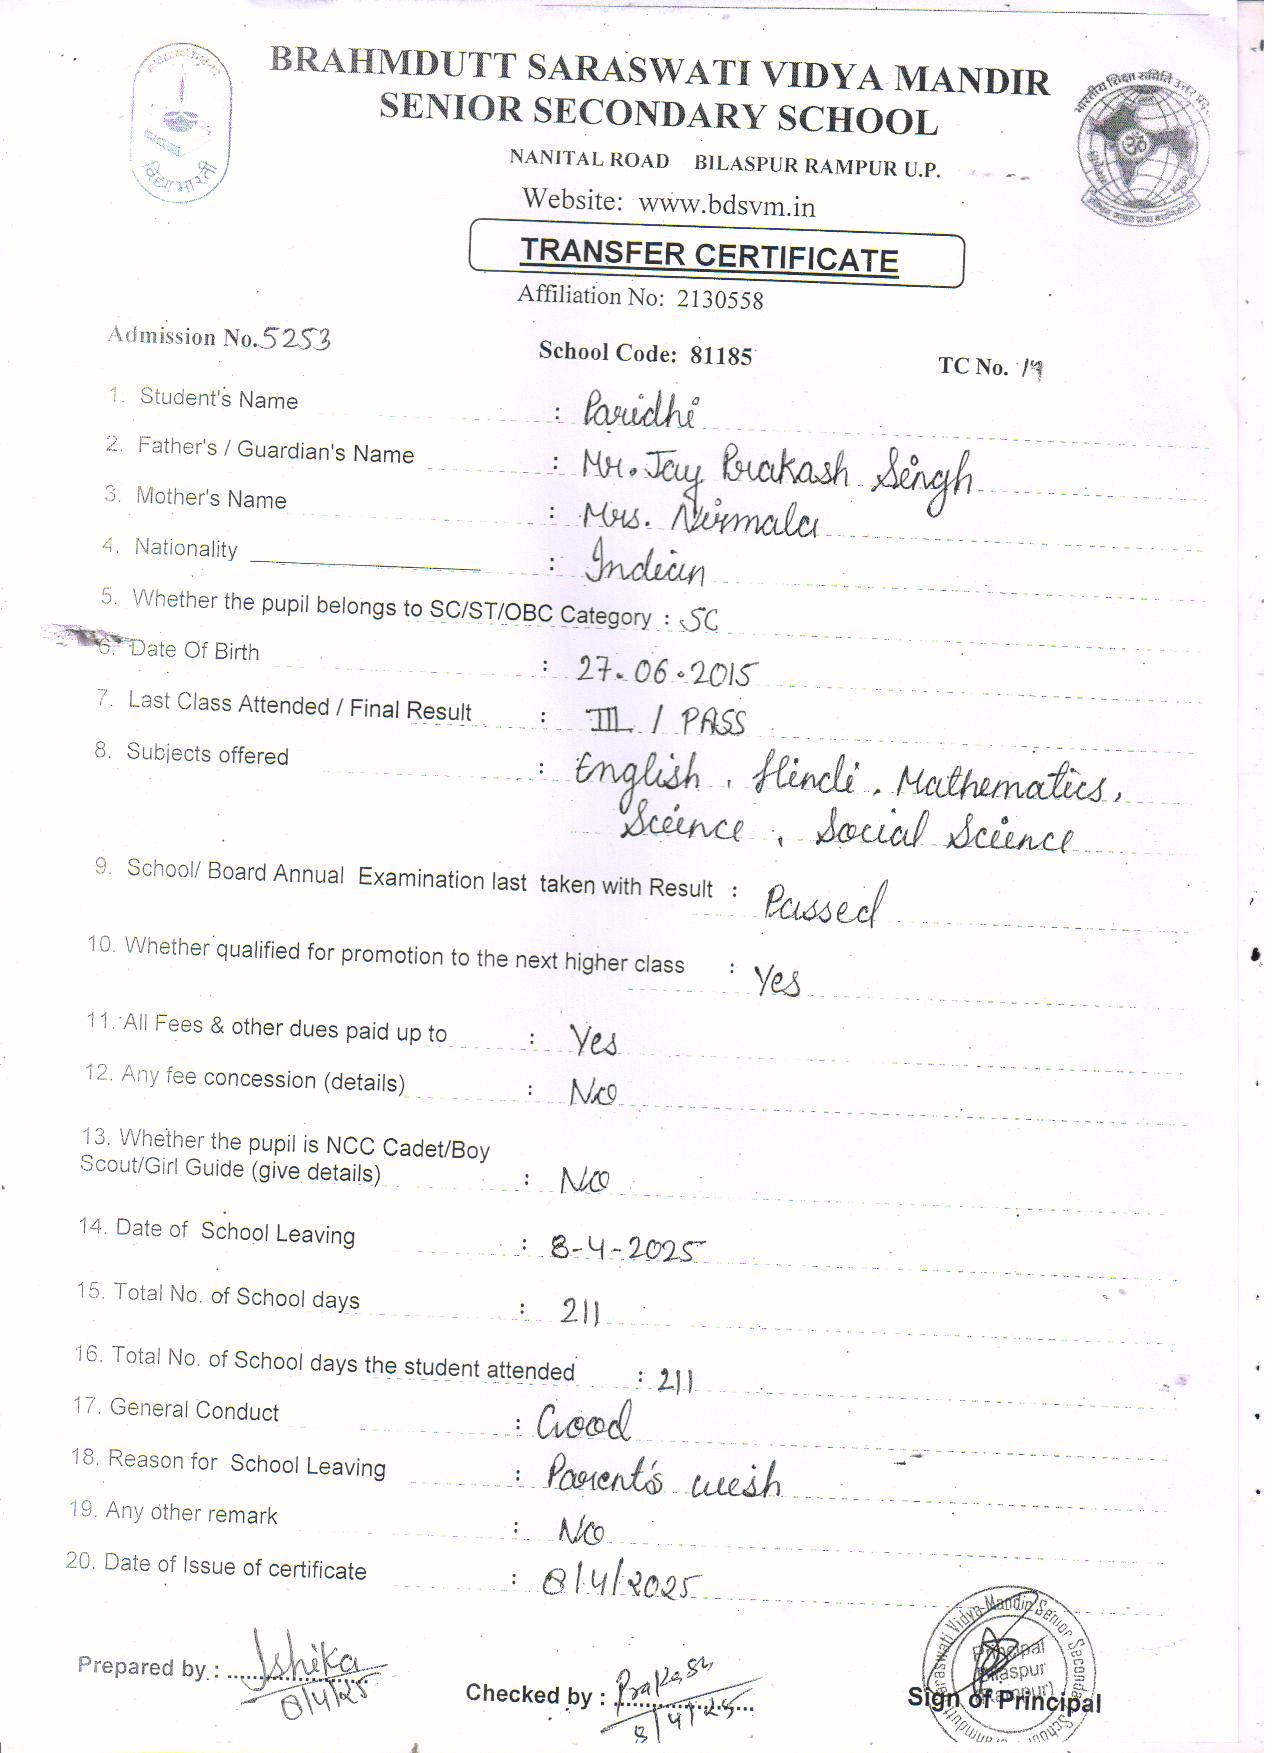 BRAHMDUTT SARASWATI VIDYA MANDIR
SENIOR SECONDARY SCHOOL
NANITAL ROAD BILASPUR RAMPUR U.P.
Website: www.bdsvm.in
TRANSFER CERTIFICATE
Affiliation No: 2130558
Admission No. 5253 School Code: 81185 TC No. 19
1. Student's Name : Paridhi
2. Father's / Guardian's Name : Mr. Jay Prakash Singh
3. Mother's Name : Mrs. Nirmala
4. Nationality : Indian
5. Whether the pupil belongs to SC/ST/OBC Category : SC
6. Date Of Birth : 27.06.2015
7. Last Class Attended / Final Result : III / PASS
8. Subjects offered : English, Hindi, Mathematics,
Science, Social Science
9. School/ Board Annual Examination last taken with Result : Passed
10. Whether qualified for promotion to the next higher class : Yes
11. All Fees & other dues paid up to : Yes
12. Any fee concession (details) : No
13. Whether the pupil is NCC Cadet/Boy
Scout/Girl Guide (give details) : No
14. Date of School Leaving : 8-4-2025
15. Total No. of School days : 211
16. Total No. of School days the student attended : 211
17. General Conduct : Good
18. Reason for School Leaving : Parent's wish
19. Any other remark : No
20. Date of Issue of certificate : 8/4/2025
Prepared by : Ishika
8/4/25
Checked by : Prakash
8/4/25
Sign of Principal
विद्या भारती
भारतीय शिक्षा समिति उत्तर प्रदेश
Saraswati Vidya Mandir Senior Secondary School
Principal
Bilaspur
(Rampur)